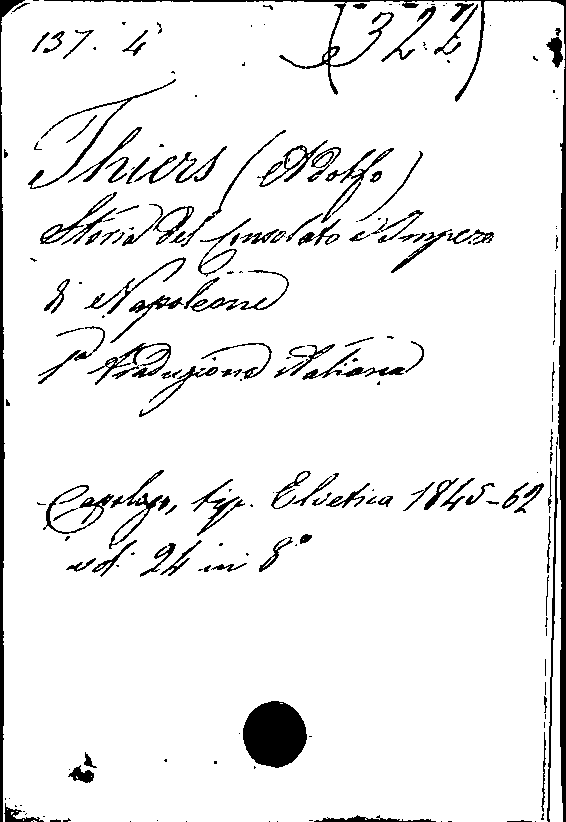 137. 4 (322)
Thiers (Adolfo)
Storia del Consolato e Impero
di Napoleone
1a traduzione italiana
Capolago, tip. Elvetica 1845-62
vol. 24 in 8°